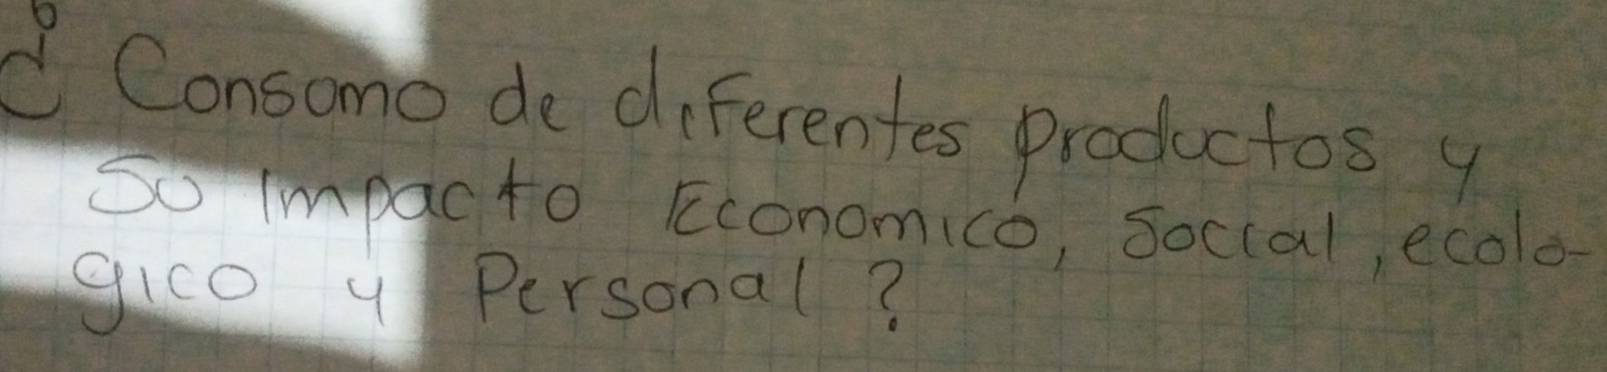 ¿ Consumo de diferentes productos y
su impacto Economico, social, ecolo-
gico y Personal?